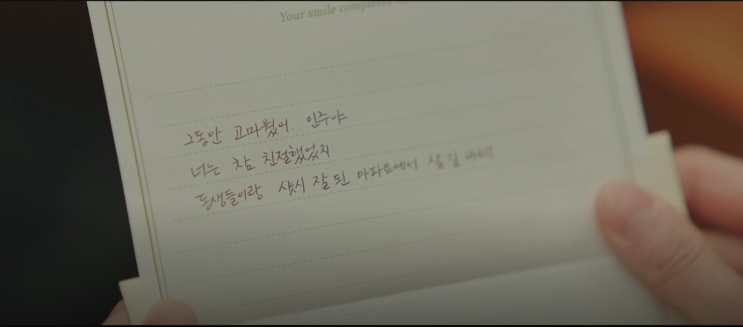 Your smile
그동안 고마웠어 인주야
너는 참 친절했었지
동생들이랑 샷시 잘 된 아파트에서 살길 바래